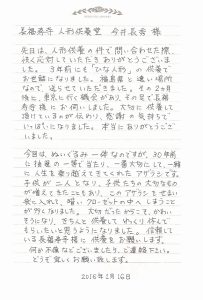 長福寿寺 人形供養堂 今井長秀 様
先日は、人形供養の件で問い合わせた際、
快く応対していただきありがとうございま
した。3年前にも「ひな人形」の供養で
お世話になりました。福島県と遠い場所
なので、送らせていただきました。その2ヶ月
後に、東京に行く機会があり、その足で長福
寿寺様にお伺いしました。大切に供養して
頂けているのが伝わり、感謝の気持ちで
いっぱいになりました。本当にありがとうござ
いました。
今回は、ぬいぐるみ一体なのですが、30年前
に抽選の一等で当たり、一番大切にして、一緒
に人生を乗り越えてきてくれたアザラシです。
子供が二人となり、子供たちの大切なもの
が増えてきたこともあり、このアザラシをせまい
袋に入れて、暗いクローゼットの中へしまうこと
が多くなりました。大切だったからこそ、かわい
そうになり、きちんと供養して、ゆっくり休んで
もらいたいと思うようになりました。信頼して
いる長福寿寺様に供養をお願いします。
何か不備などございましたら、ご連絡下さい。
どうぞ宜しくお願い致します。
2016年2月16日